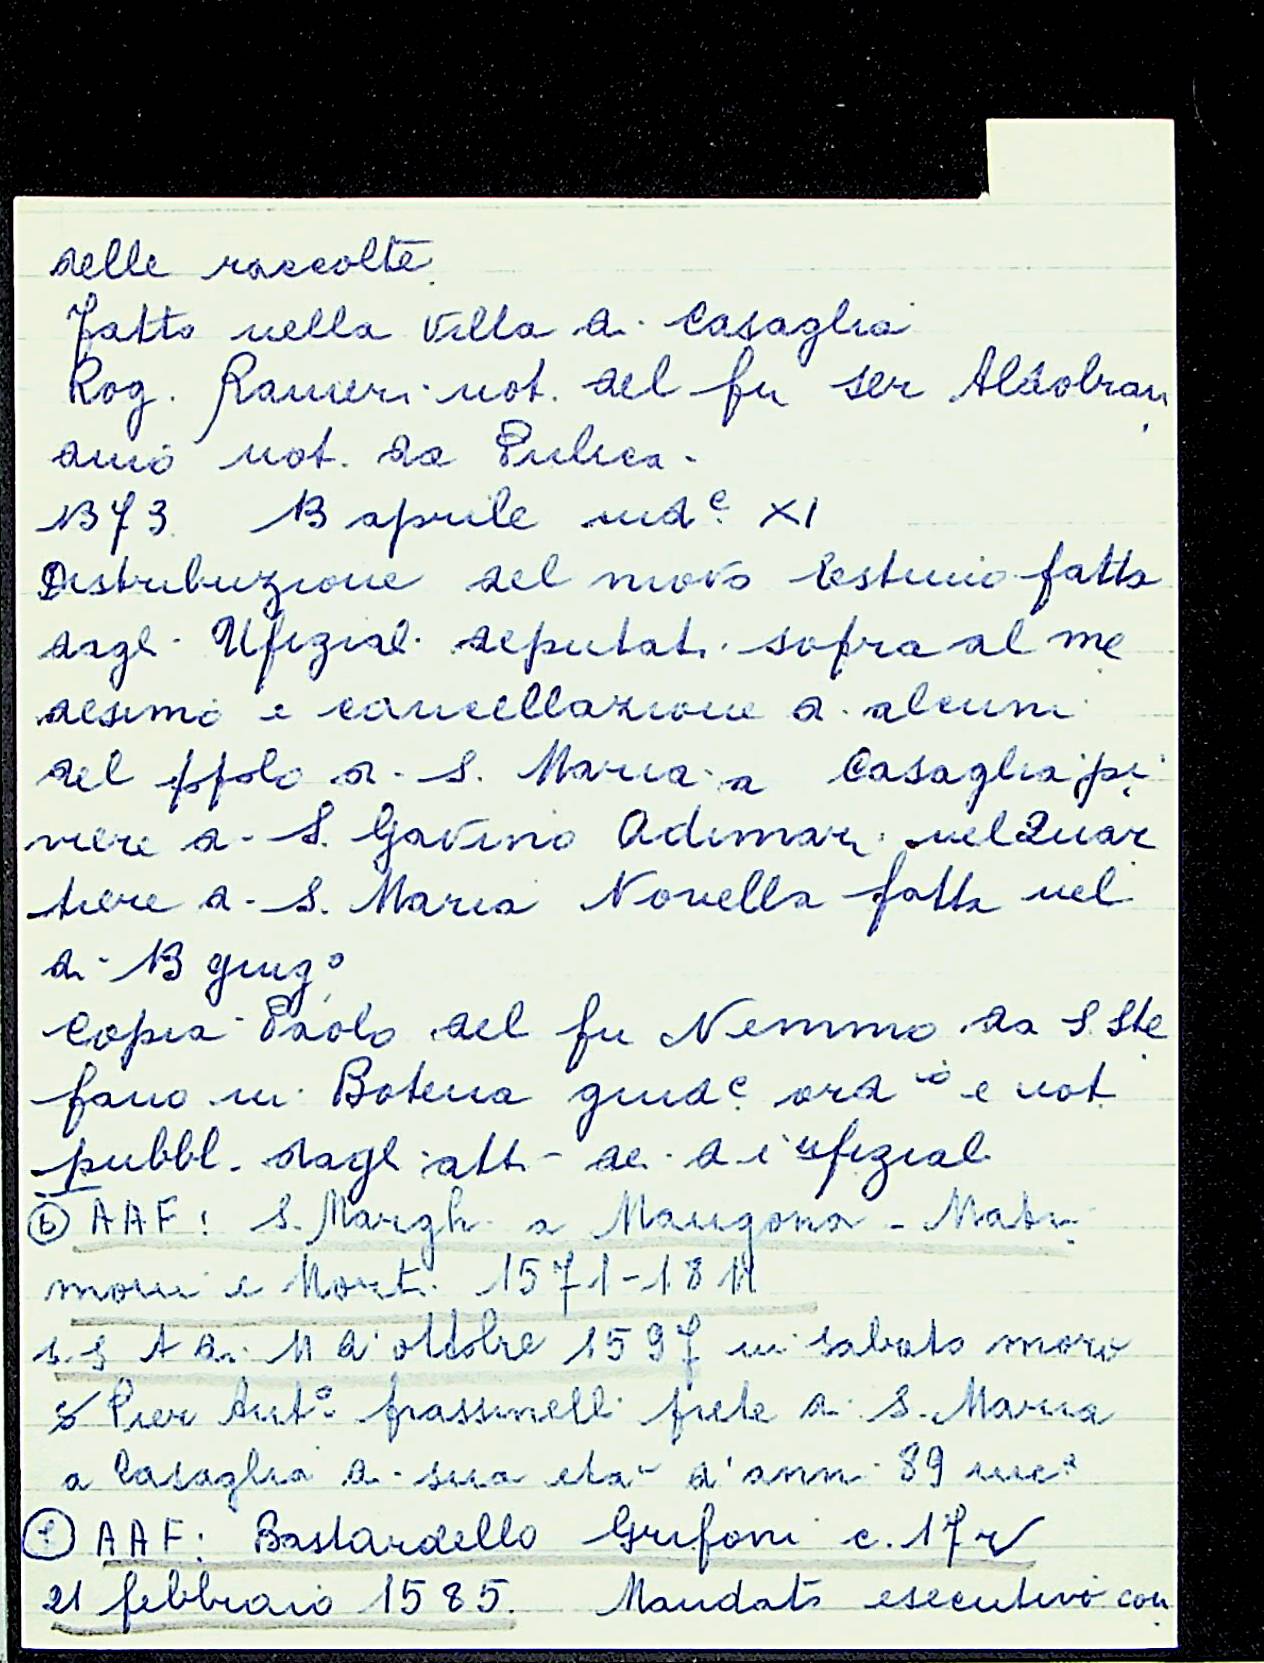 delle raccolte
Fatto nella Villa di Casaglia
Rog. Ranieri not. del fu ser Aldobran
dino not. da Pulica.
1373 13 aprile indᵉ XI
Distribuzione del novo Estimo fatta
dagli Ufiziali deputati sopra al me
desimo e cancellazione di alcuni
del pplo di S. Maria a Casaglia pi
viere di S. Gavino Adimari nel Quar
tiere di S. Maria Novella fatta nel
di 13 giugº
Copia Paolo del fu Nemmo da S. Ste
fano in Botena giudᵉ ordⁱᵒ e not
pubbl. dagli atti de di ufizial
⑥ AAF: S. Margh. a Mangona - Matri
moni e Morti 1571-1811
A di 11 d'ottobre 1597 in sabato morv
Pier Antº frassinelli prete di S. Maria
a Casaglia di sua età d'anni 89 incª
AAF: Bastardello Grifoni c. 17r
21 febbraio 1585. Mandato esecutivo con